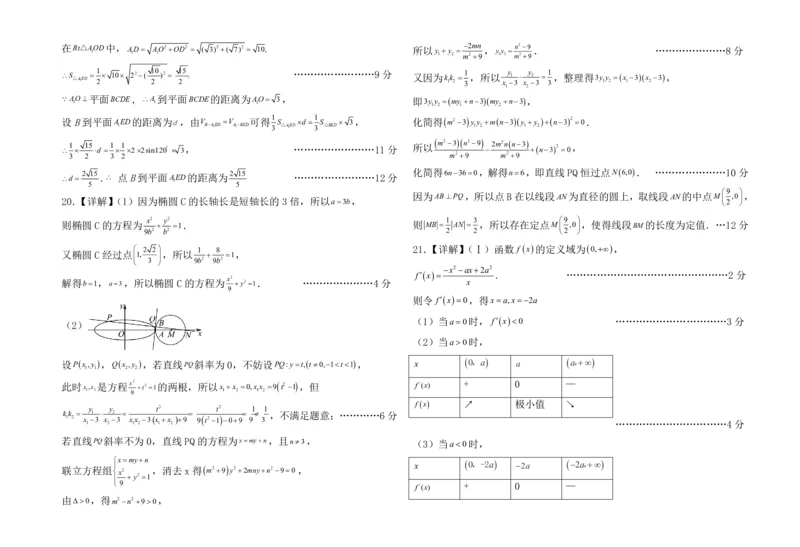 在Rt△A₁OD中，A₁D = √(A₁O²+OD²) = √((√3)²+(√7)²) = √10,
∴S△A₁ED = 1/2 × √10 × √(2√2² − (√10/2)²) = √15/2. ……………………9分
∵A₁O⊥平面BCDE，∴A₁到平面BCDE的距离为A₁O=√3，
设B到平面A₁ED的距离为d，由V_{B-A₁ED}=V_{A₁-BED}可得 1/3 S△A₁ED × d = 1/3 S△BED × √3，
∴1/3 × √15/2 · d = 1/3 × 1/2 × 2×2sin120° × √3， ……………………11分
∴d = 2√15/5，∴点B到平面A₁ED的距离为 2√15/5 ……………………12分
20.【详解】(1) 因为椭圆C的长轴长是短轴长的3倍，所以a=3b，
则椭圆C的方程为 x²/9b² + y²/b² = 1.
又椭圆C经过点(1, 2√2/3)，所以 1/9b² + 8/9b² = 1,
解得b=1, a=3，所以椭圆C的方程为 x²/9 + y² = 1. ……………………4分
(2)
y
P
Q
B
O
A
M
N
x
设P(x₁,y₁)，Q(x₂,y₂)，若直线PQ斜率为0，不妨设PQ: y=t,(t≠0,−1<t<1)，
此时x₁,x₂是方程 x²/9 + t² = 1的两根，所以x₁+x₂=0,x₁x₂=9(t²−1)，但
k₁k₂ = y₁/(x₁−3) · y₂/(x₂−3) = t²/(x₁x₂−3(x₁+x₂)+9) = t²/(9(t²−1)−0+9) = 1/9 ≠ 1/3，不满足题意；…………6分
若直线PQ斜率不为0，直线PQ的方程为x=my+n，且n≠3，
联立方程组{x=my+n, x²/9+y²=1，消去x得(m²+9)y²+2mny+n²−9=0，
由Δ>0，得m²−n²+9>0，
所以y₁+y₂ = −2mn/(m²+9)，y₁y₂ = (n²−9)/(m²+9). ……………………8分
又因为k₁k₂ = 1/3，所以 y₁/(x₁−3) · y₂/(x₂−3) = 1/3，整理得3y₁y₂=(x₁−3)(x₂−3)，
即3y₁y₂=(my₁+n−3)(my₂+n−3)，
化简得(m²−3)y₁y₂+m(n−3)(y₁+y₂)+(n−3)²=0.
所以 (m²−3)(n²−9)/(m²+9) − 2m²n(n−3)/(m²+9) + (n−3)² = 0，
化简得6n−36=0，解得n=6，即直线PQ恒过点N(6,0). ……………………10分
因为AB⊥PQ，所以点B在以线段AN为直径的圆上，取线段AN的中点M(9/2,0)，
则|MB| = 1/2|AN| = 3/2，所以存在定点M(9/2,0)，使得线段BM的长度为定值. …12分
21.【详解】(Ⅰ) 函数f(x)的定义域为(0,+∞)，
f′(x) = (−x²−ax+2a²)/x. ……………………………………………2分
则令f′(x)=0，得x=a,x=−2a
(1) 当a=0时，f′(x)<0 ………………………………3分
(2) 当a>0时，
x (0，a) a (a,+∞)
f′(x) + 0 —
f(x) ↗ 极小值 ↘
…………………………………4分
(3) 当a<0时，
x (0，−2a) −2a (−2a,+∞)
f′(x) + 0 —